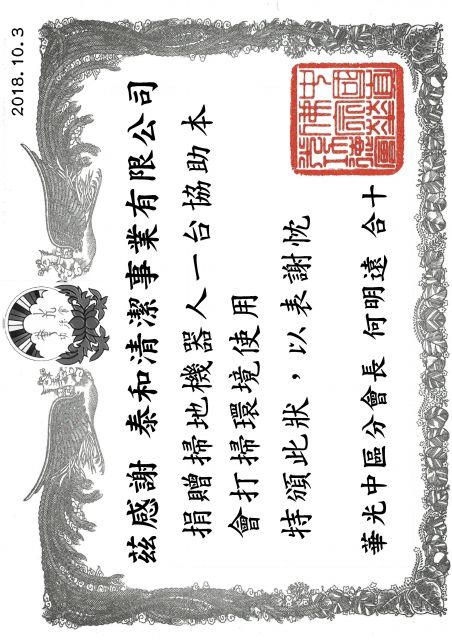 2018.10.3
茲感謝 泰和清潔事業有限公司
捐贈掃地機器人一台協助本
會打掃環境使用
特頒此狀，以表謝忱
華光中區分會長 何明遠 合十